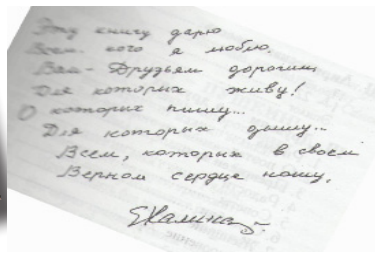 Эту книгу дарю
Всем. кого я люблю.
Вам - Друзьям дорогим,
Для которых живу!
О которых пишу...
Для которых дышу...
Всем, которых в своём
Верном сердце ношу.